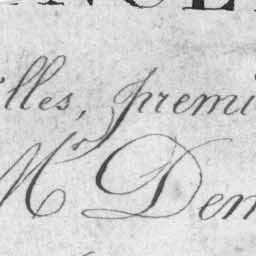 illes, premi
Mr Dem